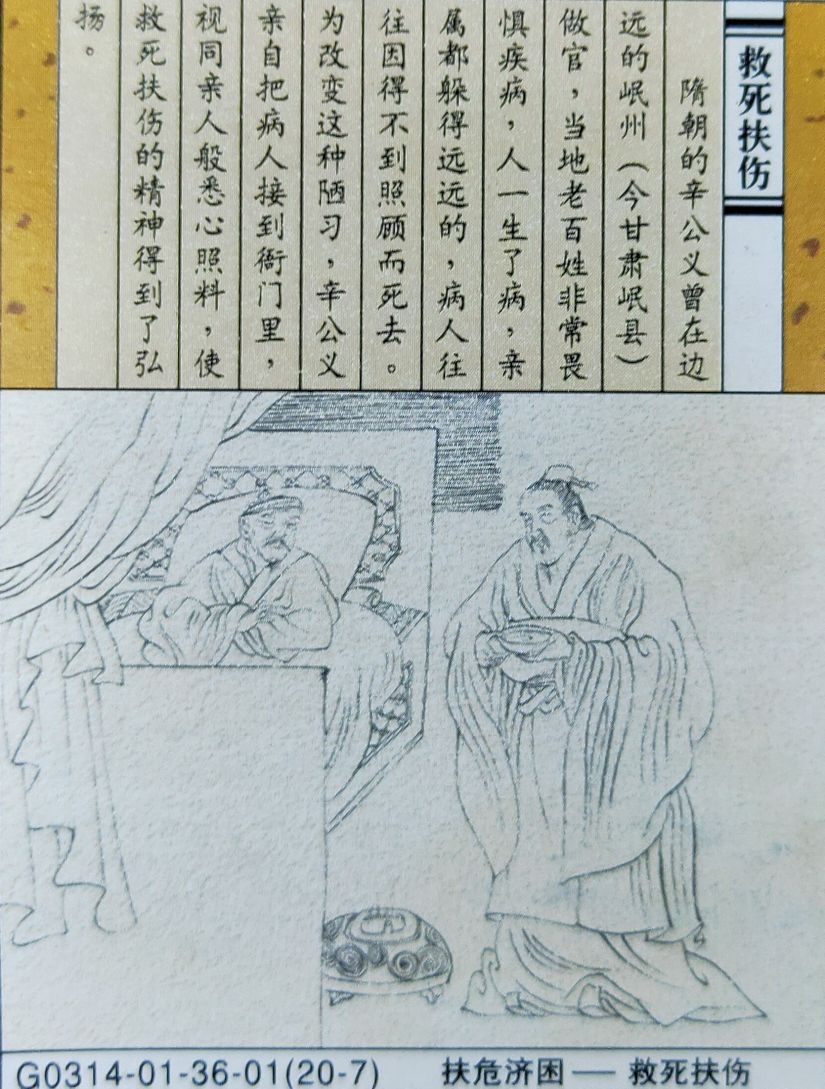 救死扶伤
隋朝的辛公义曾在边
远的岷州（今甘肃岷县）
做官，当地老百姓非常畏
惧疾病，人一生了病，亲
属都躲得远远的，病人往
往因得不到照顾而死去。
为改变这种陋习，辛公义
亲自把病人接到衙门里，
视同亲人般悉心照料，使
救死扶伤的精神得到了弘
扬。
G0314-01-36-01(20-7) 扶危济困 — 救死扶伤